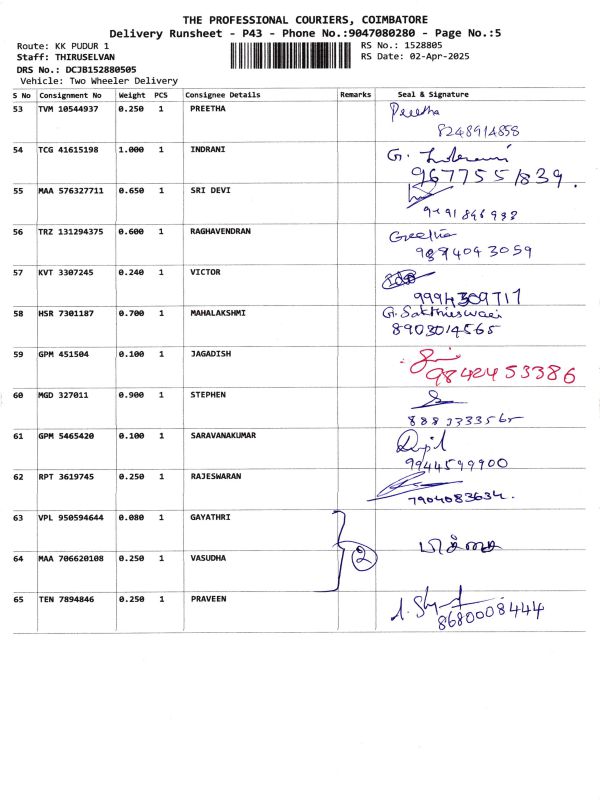 THE PROFESSIONAL COURIERS, COIMBATORE
Delivery Runsheet - P43 - Phone No.:9047080280 - Page No.:5
Route: KK PUDUR 1
RS No.: 1528805
Staff: THIRUSELVAN
RS Date: 02-Apr-2025
DRS No.: DCJB152880505
Vehicle: Two Wheeler Delivery
S No Consignment No Weight PCS Consignee Details Remarks Seal & Signature
53 TVM 10544937 0.250 1 PREETHA Preetha
8248914858
54 TCG 41615198 1.000 1 INDRANI G.
9677551839.
55 MAA 576327711 0.650 1 SRI DEVI
56 TRZ 131294375 0.600 1 RAGHAVENDRAN Geetha
9894043059
57 KVT 3307245 0.240 1 VICTOR
9994309717
58 HSR 7301187 0.700 1 MAHALAKSHMI G.
8903014565
59 GPM 451504 0.100 1 JAGADISH
9842453386
60 MGD 327011 0.900 1 STEPHEN
61 GPM 5465420 0.100 1 SARAVANAKUMAR
9944599900
62 RPT 3619745 0.250 1 RAJESWARAN
7904083634.
63 VPL 950594644 0.080 1 GAYATHRI
2
64 MAA 706620108 0.250 1 VASUDHA
65 TEN 7894846 0.250 1 PRAVEEN
8680008444